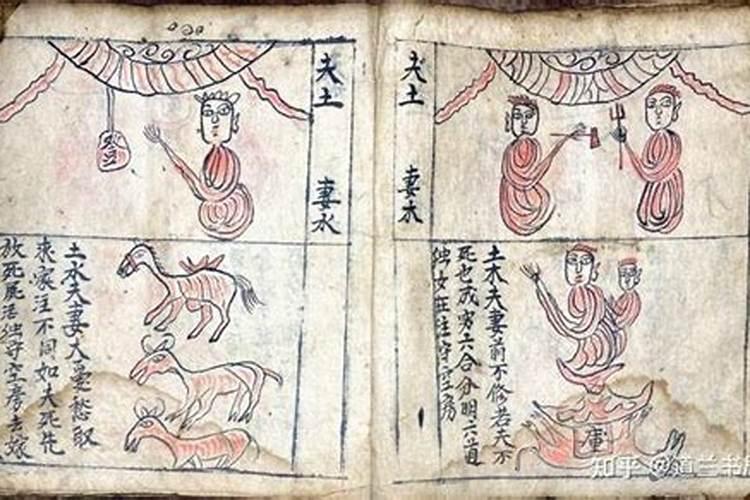 土木夫妻前不修若夫不
死也成穷六合分明六道
独女在往守空房
夫土 妻木
庫
夫土 妻水
土水夫妻大憂愁取
来家注不同如夫死先
放死屍活独守空房去嫁
知乎 @道兰书